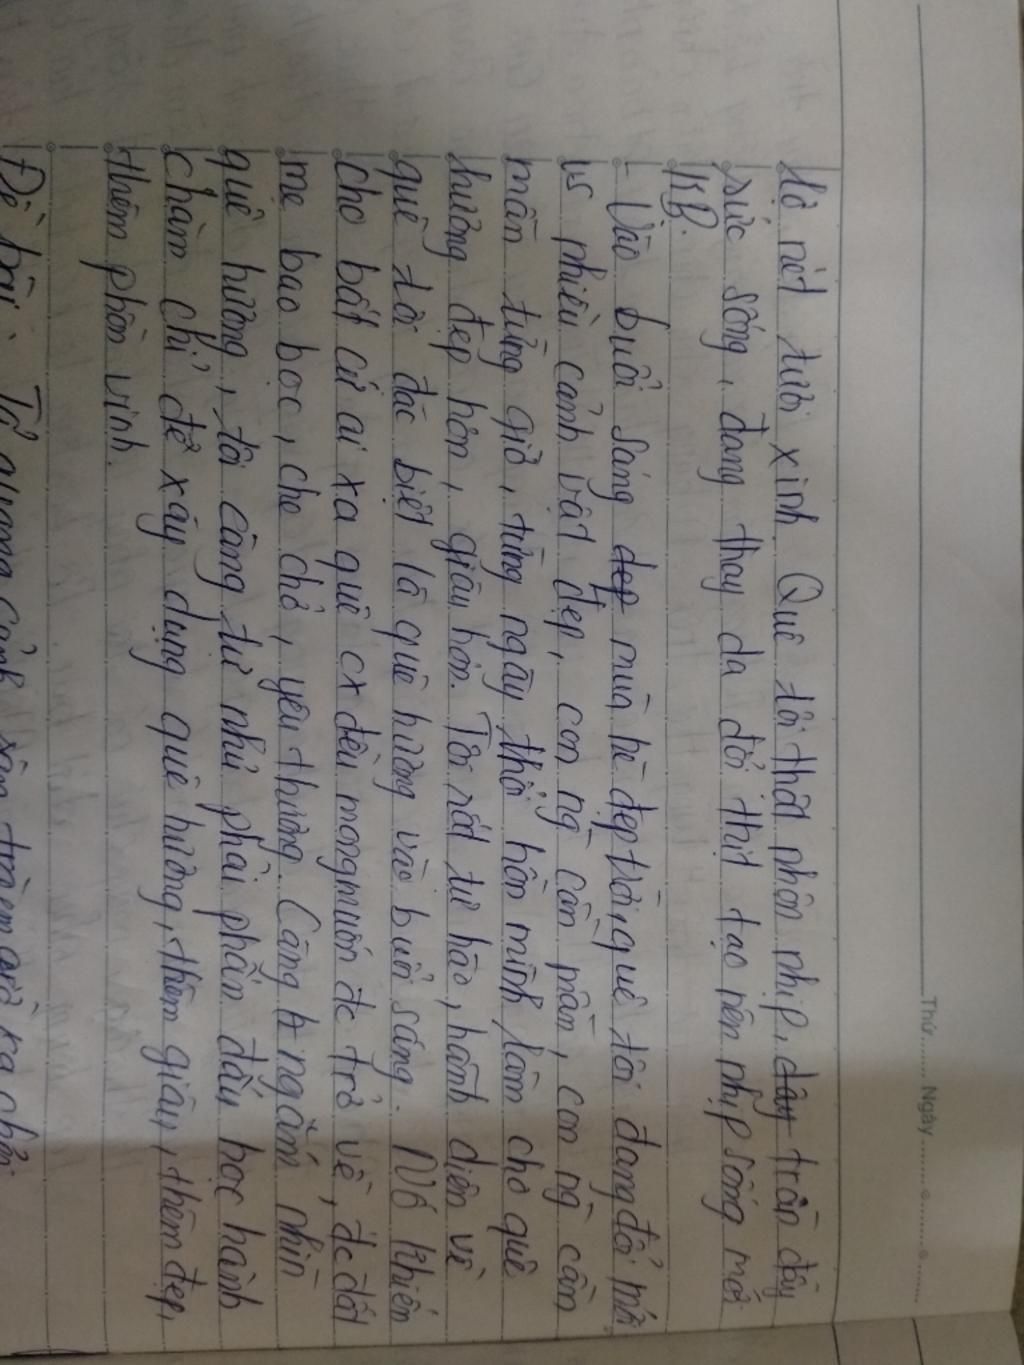 Thứ........ Ngày...................
lộ nét tươi xinh. Quê tôi thật nhộn nhịp, dây tràn đầy
sức sống, đang thay da đổi thịt tạo nên nhịp sống mới
KB.
- Vào buổi sáng đẹp mùa hè đẹp trời, quê tôi đang đổi mới
vs nhiều cảnh vật đẹp, con ng cần mẫn, con ng cần
mẫn từng giờ, từng ngày thổi hồn mình làm cho quê
hương đẹp hơn, giàu hơn. Tôi rất tự hào, hãnh diện về
quê tôi đặc biệt là quê hương vào buổi sáng. Nó khiến
cho bất cứ ai xa quê cx đều mong muốn đc trở về, đc đất
mẹ bao bọc, che chở, yêu thương. Càng ngắm nhìn
quê hương, tôi càng tự nhủ phải phấn đấu học hành
chăm chỉ để xây dựng quê hương, thêm giàu, thêm đẹp,
thêm phồn vinh.
Đề bài: Tả quang cảnh sân trường giờ ra chơi